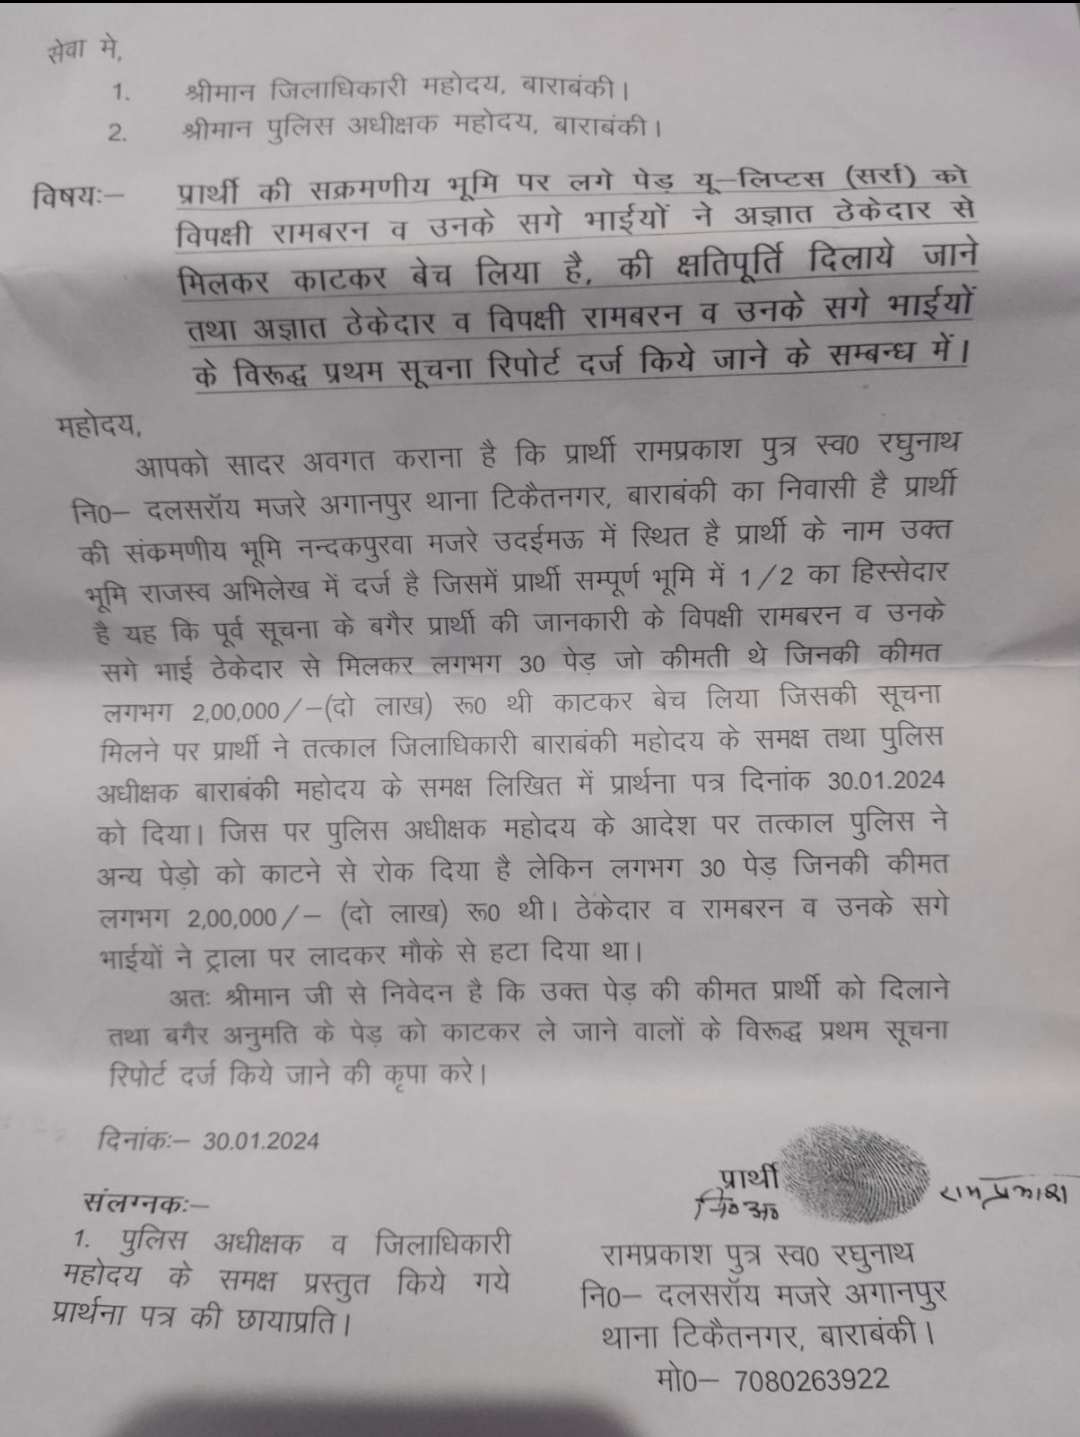 सेवा मे,
1. श्रीमान जिलाधिकारी महोदय, बाराबंकी।
2. श्रीमान पुलिस अधीक्षक महोदय, बाराबंकी।
विषयः– प्रार्थी की सक्रमणीय भूमि पर लगे पेड़ यू–लिप्टस (सर्रा) को
विपक्षी रामबरन व उनके सगे भाईयों ने अज्ञात ठेकेदार से
मिलकर काटकर बेच लिया है, की क्षतिपूर्ति दिलाये जाने
तथा अज्ञात ठेकेदार व विपक्षी रामबरन व उनके सगे भाईयों
के विरूद्ध प्रथम सूचना रिपोर्ट दर्ज किये जाने के सम्बन्ध में।
महोदय,
आपको सादर अवगत कराना है कि प्रार्थी रामप्रकाश पुत्र स्व0 रघुनाथ
नि0– दलसरॉय मजरे अगानपुर थाना टिकैतनगर, बाराबंकी का निवासी है प्रार्थी
की संक्रमणीय भूमि नन्दकपुरवा मजरे उदईमऊ में स्थित है प्रार्थी के नाम उक्त
भूमि राजस्व अभिलेख में दर्ज है जिसमें प्रार्थी सम्पूर्ण भूमि में 1/2 का हिस्सेदार
है यह कि पूर्व सूचना के बगैर प्रार्थी की जानकारी के विपक्षी रामबरन व उनके
सगे भाई ठेकेदार से मिलकर लगभग 30 पेड़ जो कीमती थे जिनकी कीमत
लगभग 2,00,000/–(दो लाख) रू0 थी काटकर बेच लिया जिसकी सूचना
मिलने पर प्रार्थी ने तत्काल जिलाधिकारी बाराबंकी महोदय के समक्ष तथा पुलिस
अधीक्षक बाराबंकी महोदय के समक्ष लिखित में प्रार्थना पत्र दिनांक 30.01.2024
को दिया। जिस पर पुलिस अधीक्षक महोदय के आदेश पर तत्काल पुलिस ने
अन्य पेड़ो को काटने से रोक दिया है लेकिन लगभग 30 पेड़ जिनकी कीमत
लगभग 2,00,000/– (दो लाख) रू0 थी। ठेकेदार व रामबरन व उनके सगे
भाईयों ने ट्राला पर लादकर मौके से हटा दिया था।
अतः श्रीमान जी से निवेदन है कि उक्त पेड़ की कीमत प्रार्थी को दिलाने
तथा बगैर अनुमति के पेड़ को काटकर ले जाने वालों के विरूद्ध प्रथम सूचना
रिपोर्ट दर्ज किये जाने की कृपा करे।
दिनांकः– 30.01.2024
प्रार्थी
नि0 अ0 रामप्रकाश
संलग्नकः–
1. पुलिस अधीक्षक व जिलाधिकारी
महोदय के समक्ष प्रस्तुत किये गये
प्रार्थना पत्र की छायाप्रति।
रामप्रकाश पुत्र स्व0 रघुनाथ
नि0– दलसरॉय मजरे अगानपुर
थाना टिकैतनगर, बाराबंकी।
मो0– 7080263922